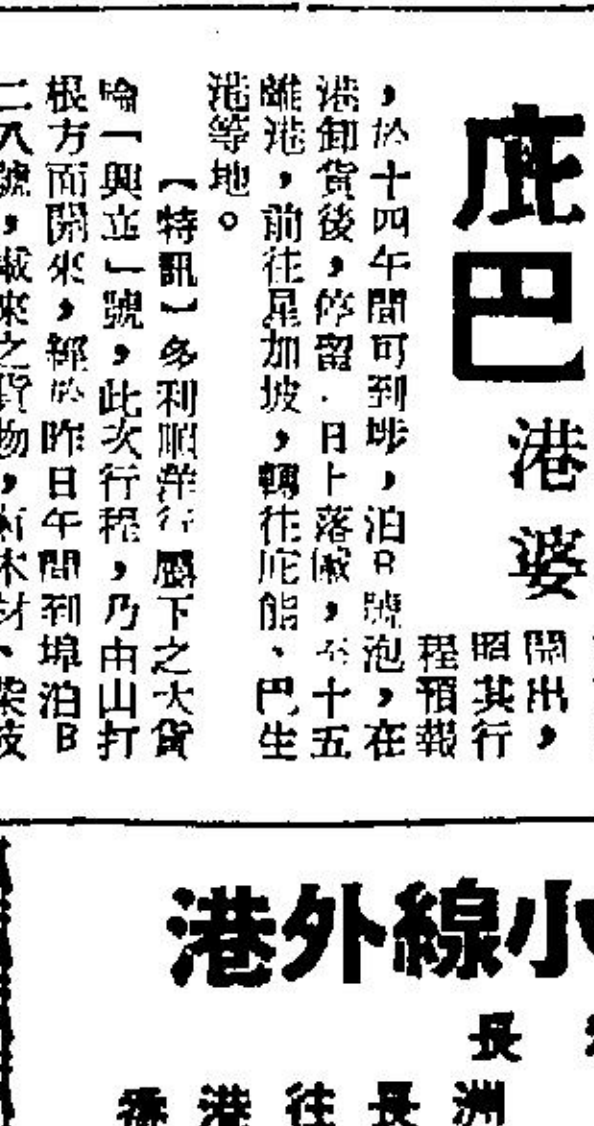 庇巴
港婆
開出，
照其行
程預報
，於十四午間可到埗，泊B號泡，在
港卸貨後，停留一日上落儎，至十五
離港，前往星加坡，轉往庇能、巴生
港等地。
【特訊】多利順洋行屬下之大貨
輪「興立」號，此次行程，乃由山打
根方面開來，經於昨日午間到埠泊B
二八號，載來之貨物，有木材、柴枝
小線外港
長
香港往長洲